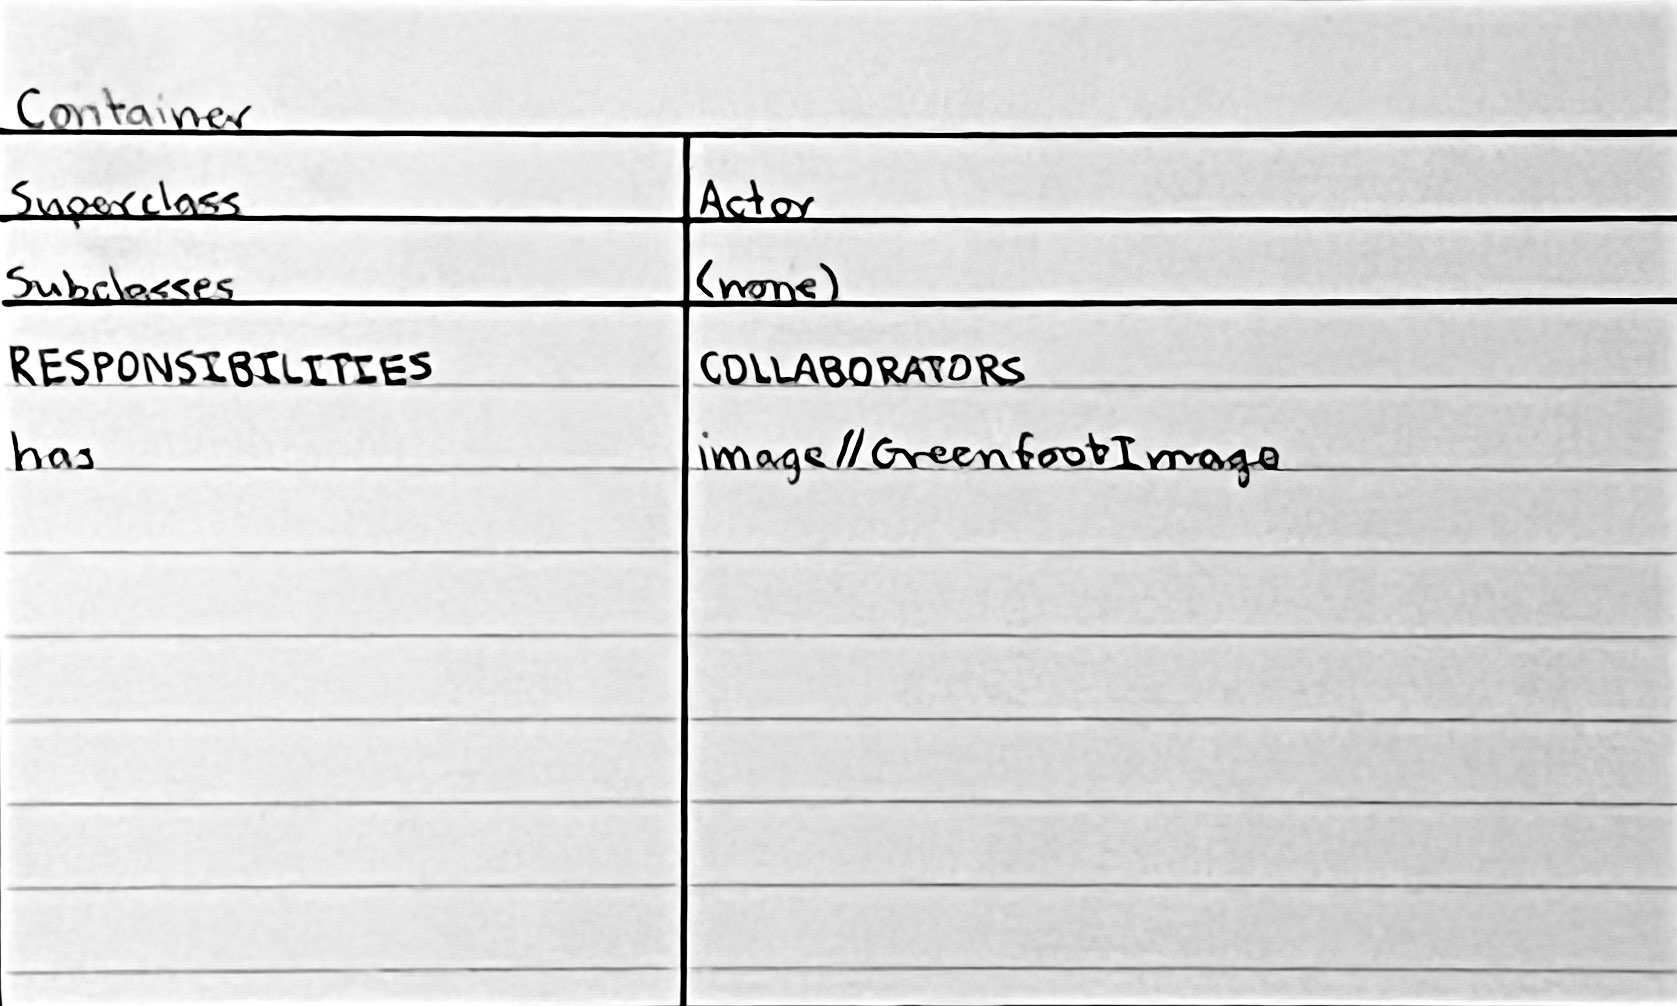 Container
Superclass Actor
Subclasses (none)
RESPONSIBILITIES COLLABORATORS
has image//GreenfootImage